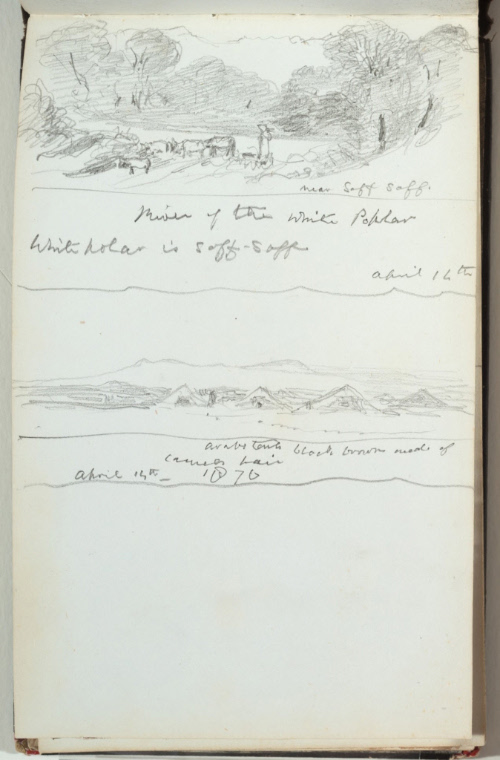 near Saff Saff.
River of the White Poplar
White Polar is Saff-Saff
April 14th
arabs tents black brown made of
camels hair
April 14th - 1876